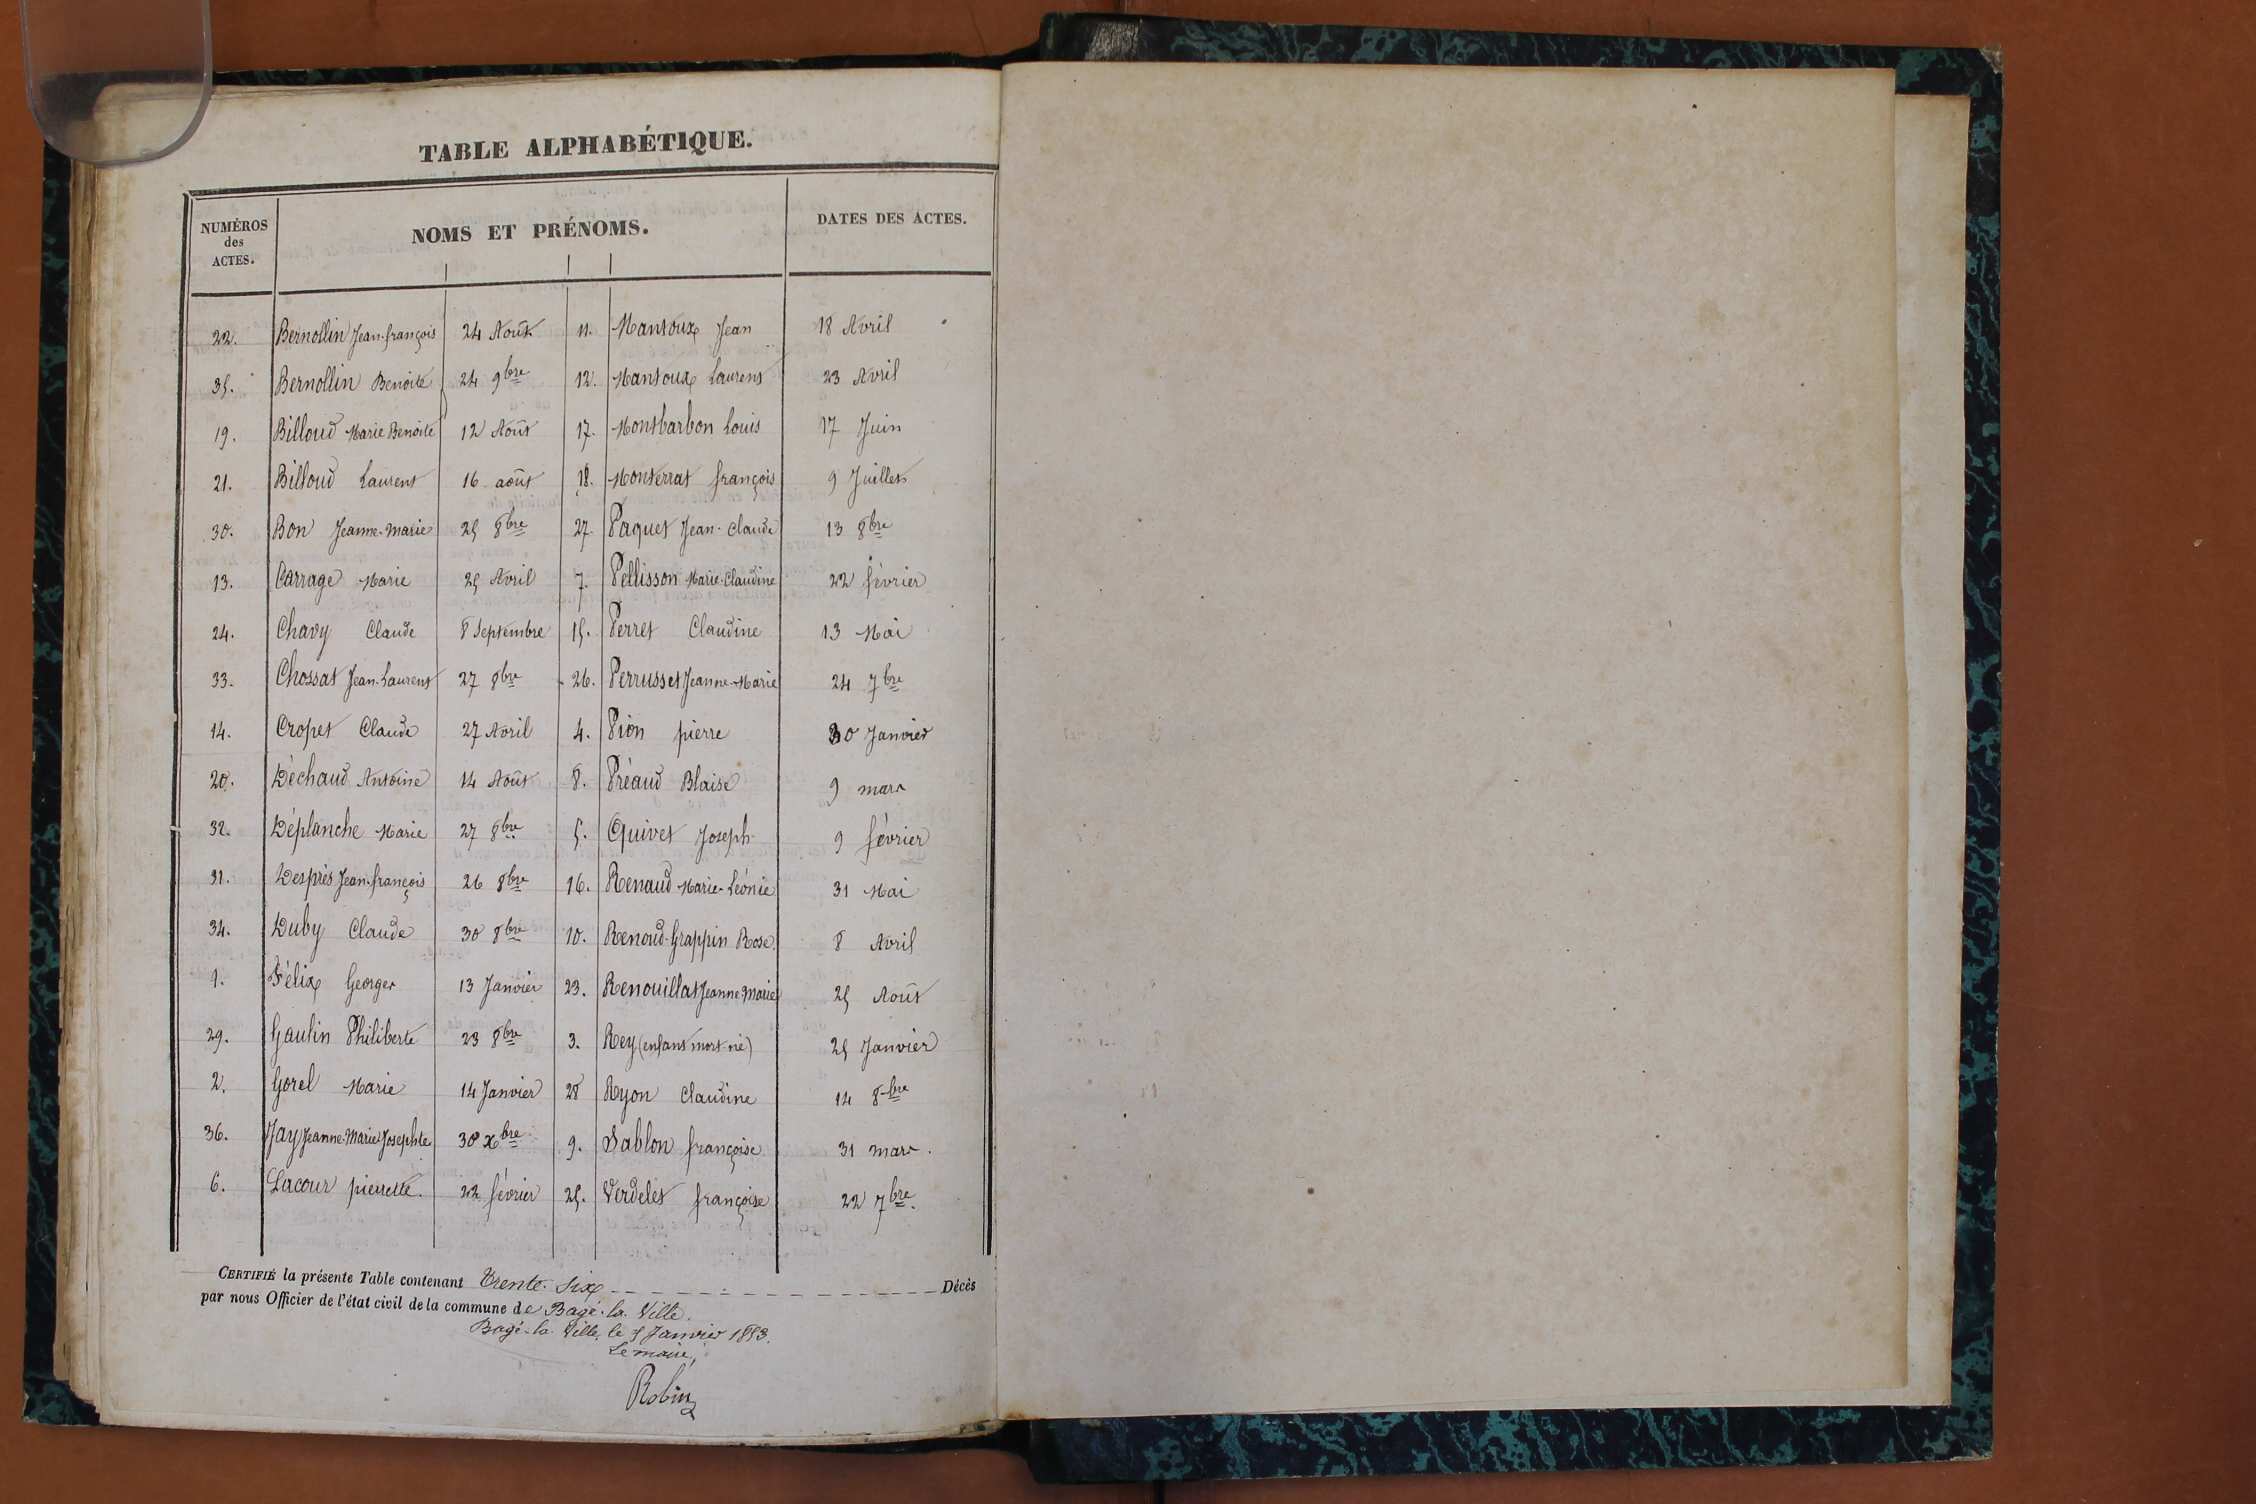 TABLE ALPHABÉTIQUE.
NUMÉROS des ACTES. NOMS ET PRÉNOMS. DATES DES ACTES.
22. Bernollin Jean-françois 24 Août 11. Mantoux Jean 18 Avril
35. Bernollin Benoite 24 9bre 12. Mantoux Laurent 23 Avril
19. Billoud Marie Benoite 12 Août 17. Montbarbon Louis 17 Juin
21. Billoud Laurent 16 août 18. Monterrat françois 9 Juillet
30. Bon Jeanne-Marie 25 8bre 27. Paquet Jean-Claude 13 8bre
13. Carrage Marie 25 Avril 7. Pellisson Marie-Claudine 22 février
24. Chavy Claude 8 Septembre 15. Perret Claudine 13 Mai
33. Chossat Jean-Laurent 27 8bre 26. Perrusset Jeanne-Marie 24 7bre
14. Cropet Claude 27 Avril 4. Pion pierre 30 Janvier
20. Déchaud Antoine 14 Août 8. Préaud Blaise 9 mars
32. Déplanche Marie 27 8bre 5. Quivet Joseph 9 février
31. Desprès Jean-françois 26 8bre 16. Renaud Marie-Léonie 31 Mai
34. Duby Claude 30 8bre 10. Renoud-Grappin Rose 8 Avril
1. Félix Georges 13 Janvier 23. Renouillat Jeanne Marie 25 Août
29. Gautin Philiberte 23 8bre 3. Rey (enfant mort-né) 25 Janvier
2. Gorel Marie 14 Janvier 28 Ryon Claudine 14 8bre
36. Jay Jeanne-Marie Josephte 30 Xbre 9. Sablon françoise 31 mars.
6. Lacour pierrette. 22 février 25. Verdelet françoise 22 7bre.
CERTIFIÉ la présente Table contenant Trente-Six Décès
par nous Officier de l'état civil de la commune de Bagé-la-Ville.
Bagé-la-Ville, le 5 Janvier 1853.
Le maire,
Robin